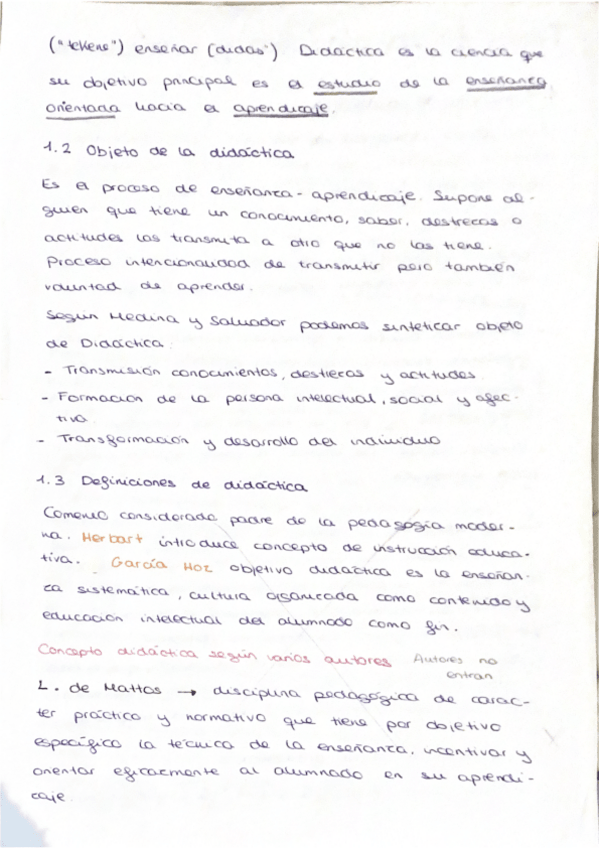 ("tekene") enseñar (didas") Didáctica es la ciencia que
su objetivo principal es el estudio de la enseñanza
orientada hacia el aprendizaje.
1.2 Objeto de la didáctica
Es el proceso de enseñanza - aprendizaje. Supone al-
guien que tiene un conocimiento, saber, destrezas o
actitudes las transmita a otro que no las tiene.
Proceso intencionalidad de transmitir pero también
voluntad de aprender.
Según Medina y Salvador podemos sintetizar objeto
de Didáctica:
- Transmisión conocimientos, destrezas y actitudes.
- Formación de la persona intelectual, social y afec-
tiva.
- Transformación y desarrollo del individuo
1.3 Definiciones de didáctica
Comenio considerado padre de la pedagogía moder-
na. Herbart introduce concepto de instrucción educa-
tiva. García Hoz objetivo didáctica es la enseñan-
za sistemática, cultura organizada como contenido y
educación intelectual del alumnado como fin.
Concepto didáctica según varios autores Autores no
entran
L. de Mattos → disciplina pedagógica de carác-
ter práctico y normativo que tiene por objetivo
específico la técnica de la enseñanza, incentivar y
orientar eficazmente al alumnado en su aprendi-
zaje.